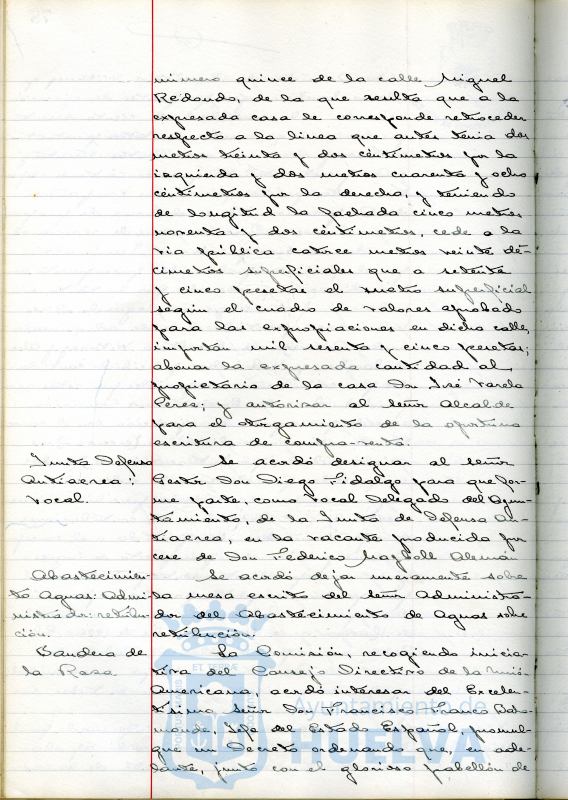 número quince de la calle Miguel
Redondo, de la que resulta que a la
expresada casa le corresponde retroceder
respecto a la línea que antes tenía dos
metros treinta y dos centímetros por la
izquierda y dos metros cuarenta y ocho
centímetros por la derecha, y teniendo
de longitud la fachada cinco metros
noventa y dos centímetros, cede a la
vía pública catorce metros veinte de-
címetros superficiales que a setenta
y cinco pesetas el metro superficial
según el cuadro de valores aprobado
para las expropiaciones en dicha calle,
importan mil sesenta y cinco pesetas;
abonar la expresada cantidad al
propietario de la casa Don José Varela
Perez; y autorizar al Señor Alcalde
para el otorgamiento de la oportuna
escritura de compra-venta.
Junta Defensa
Antiaerea:
Vocal.
Se acordó designar al Señor
Gestor Don Diego Fidalgo para que for-
me parte, como Vocal Delegado del Ayun-
tamiento, de la Junta de Defensa An-
tiaerea, en la vacante producida por
cese de Don Federico Alemán.
Abastecimien-
to Aguas: Admi-
nistrador: retribu-
ción.
Se acordó dejar nuevamente sobre
la mesa escrito del Señor Administra-
dor del Abastecimiento de Aguas sobre
retribución.
Bandera de
la Raza
La Comisión, recogiendo inicia-
tiva del Consejo Directivo de la Unión
Americana, acordó interesar del Excelen-
tísimo Señor Don Francisco Franco Baa-
monde, Jefe del Estado Español, promul-
gue un Decreto ordenando que, en ade-
lante, junto con el glorioso pabellón de
Ayuntamiento de
HUELVA